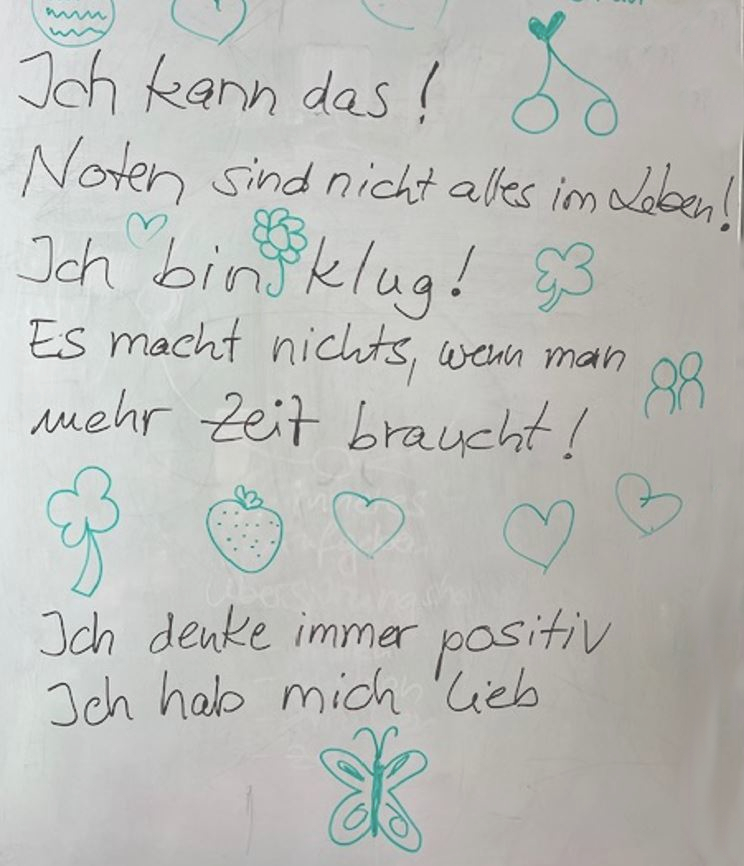 Ich kann das!
Noten sind nicht alles im Leben!
Ich bin klug!
Es macht nichts, wenn man
mehr Zeit braucht!
Ich denke immer positiv
Ich hab mich lieb